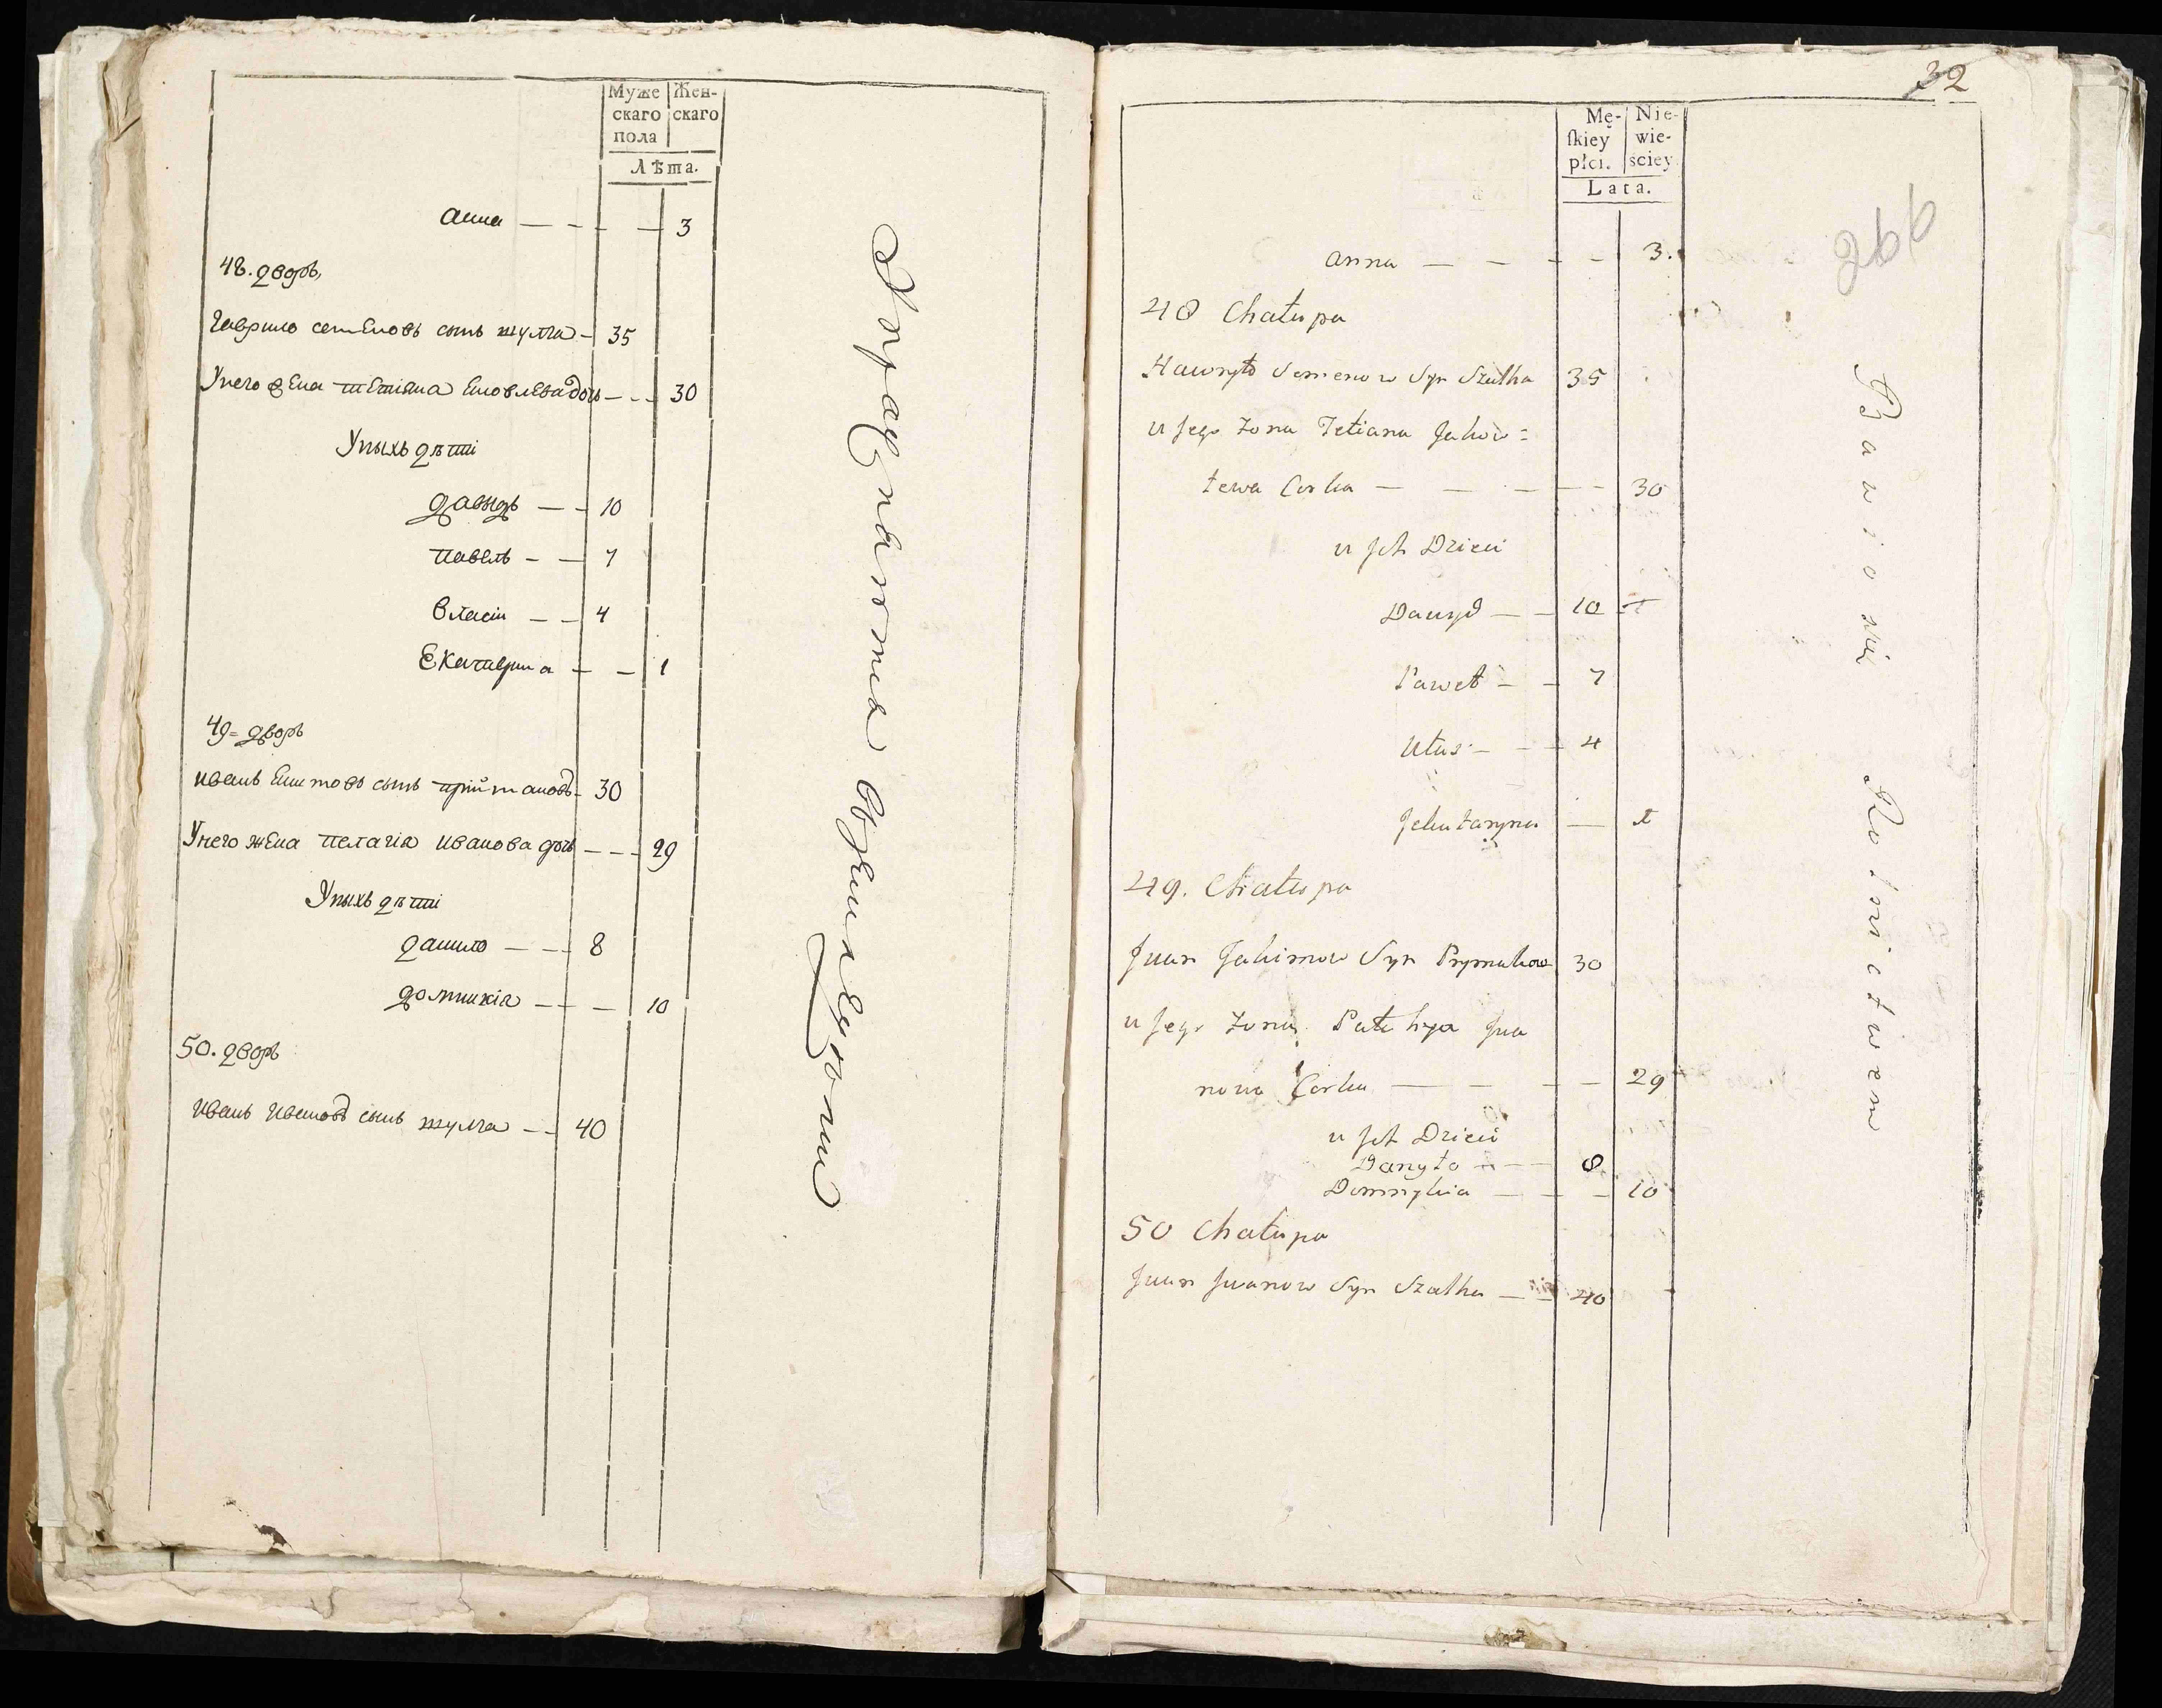 Муже
скаго
пола
Жен-
скаго
Лѣта.
анна — — — — 3
48. дворъ,
Гаврило семеновъ сынъ шулга — 35
У него жена тетіяна Яковлева дочь — — — 30
У ныхъ дѣти
давидъ — — 10
павелъ — — 7
власій — — 4
Екатерина — — 1
49 = дворъ
иванъ Якимовъ сынъ приймаковъ — 30
У него жена пелагія иванова дочь — — — 29
У ныхъ дѣти
данило — — — 8
домникія — — — 10
50. дворъ
иванъ ивановъ сынъ шулга — — 40
упражняются въ земледеліи
32
266
Mę-
ſkiey
płci.
Nie-
wie-
ściey
Lata.
anna — — — — 3.
48 Chałupa
Hawryło Semenow Syn Szulha 35
u Jego Zona Tetiana Jakow =
łewa Corka — — — — 30
u Jch Dzieci
Dawyd — — 10
Paweł — — 7
Ułas — — 4
Jekutaryna — 1
49. Chałupa
Jwan Jakimow Syn Prymakow 30
u Jego Zona Pałahya Jwa
nowa Corka — — — — 29
u Jch Dzieci
Danyło — — 8
Domnykia — — — 10
50 Chałupa
Jwan Jwanow Syn Szulha — — 40
Bawią się Rolnictwem